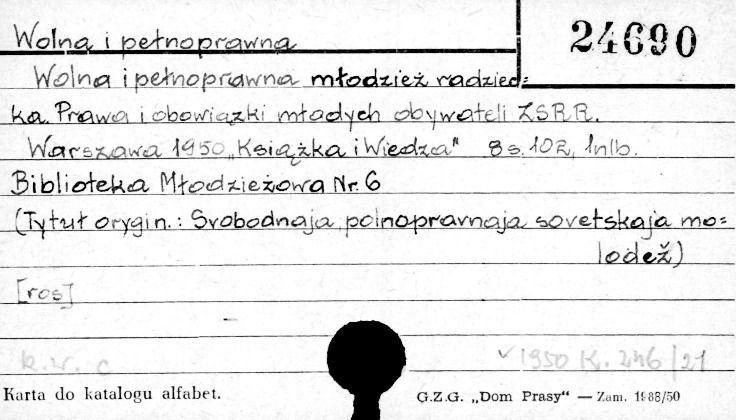 24690
Wolna i pełnoprawna
Wolna i pełnoprawna młodzież radziec=
ka. Prawa i obowiązki młodych obywateli ZSRR.
Warszawa 1950 „Książka i Wiedza" 8 s. 102, 1 nlb.
Biblioteka Młodzieżowa Nr. 6
(Tytuł orygin.: Svobodnaja polnopravnaja sovetskaja mo=
lodež)
[ros]
k.w. c
1950 K. 246/21
Karta do katalogu alfabet.
G.Z.G. „Dom Prasy" — Zam. 1988/50